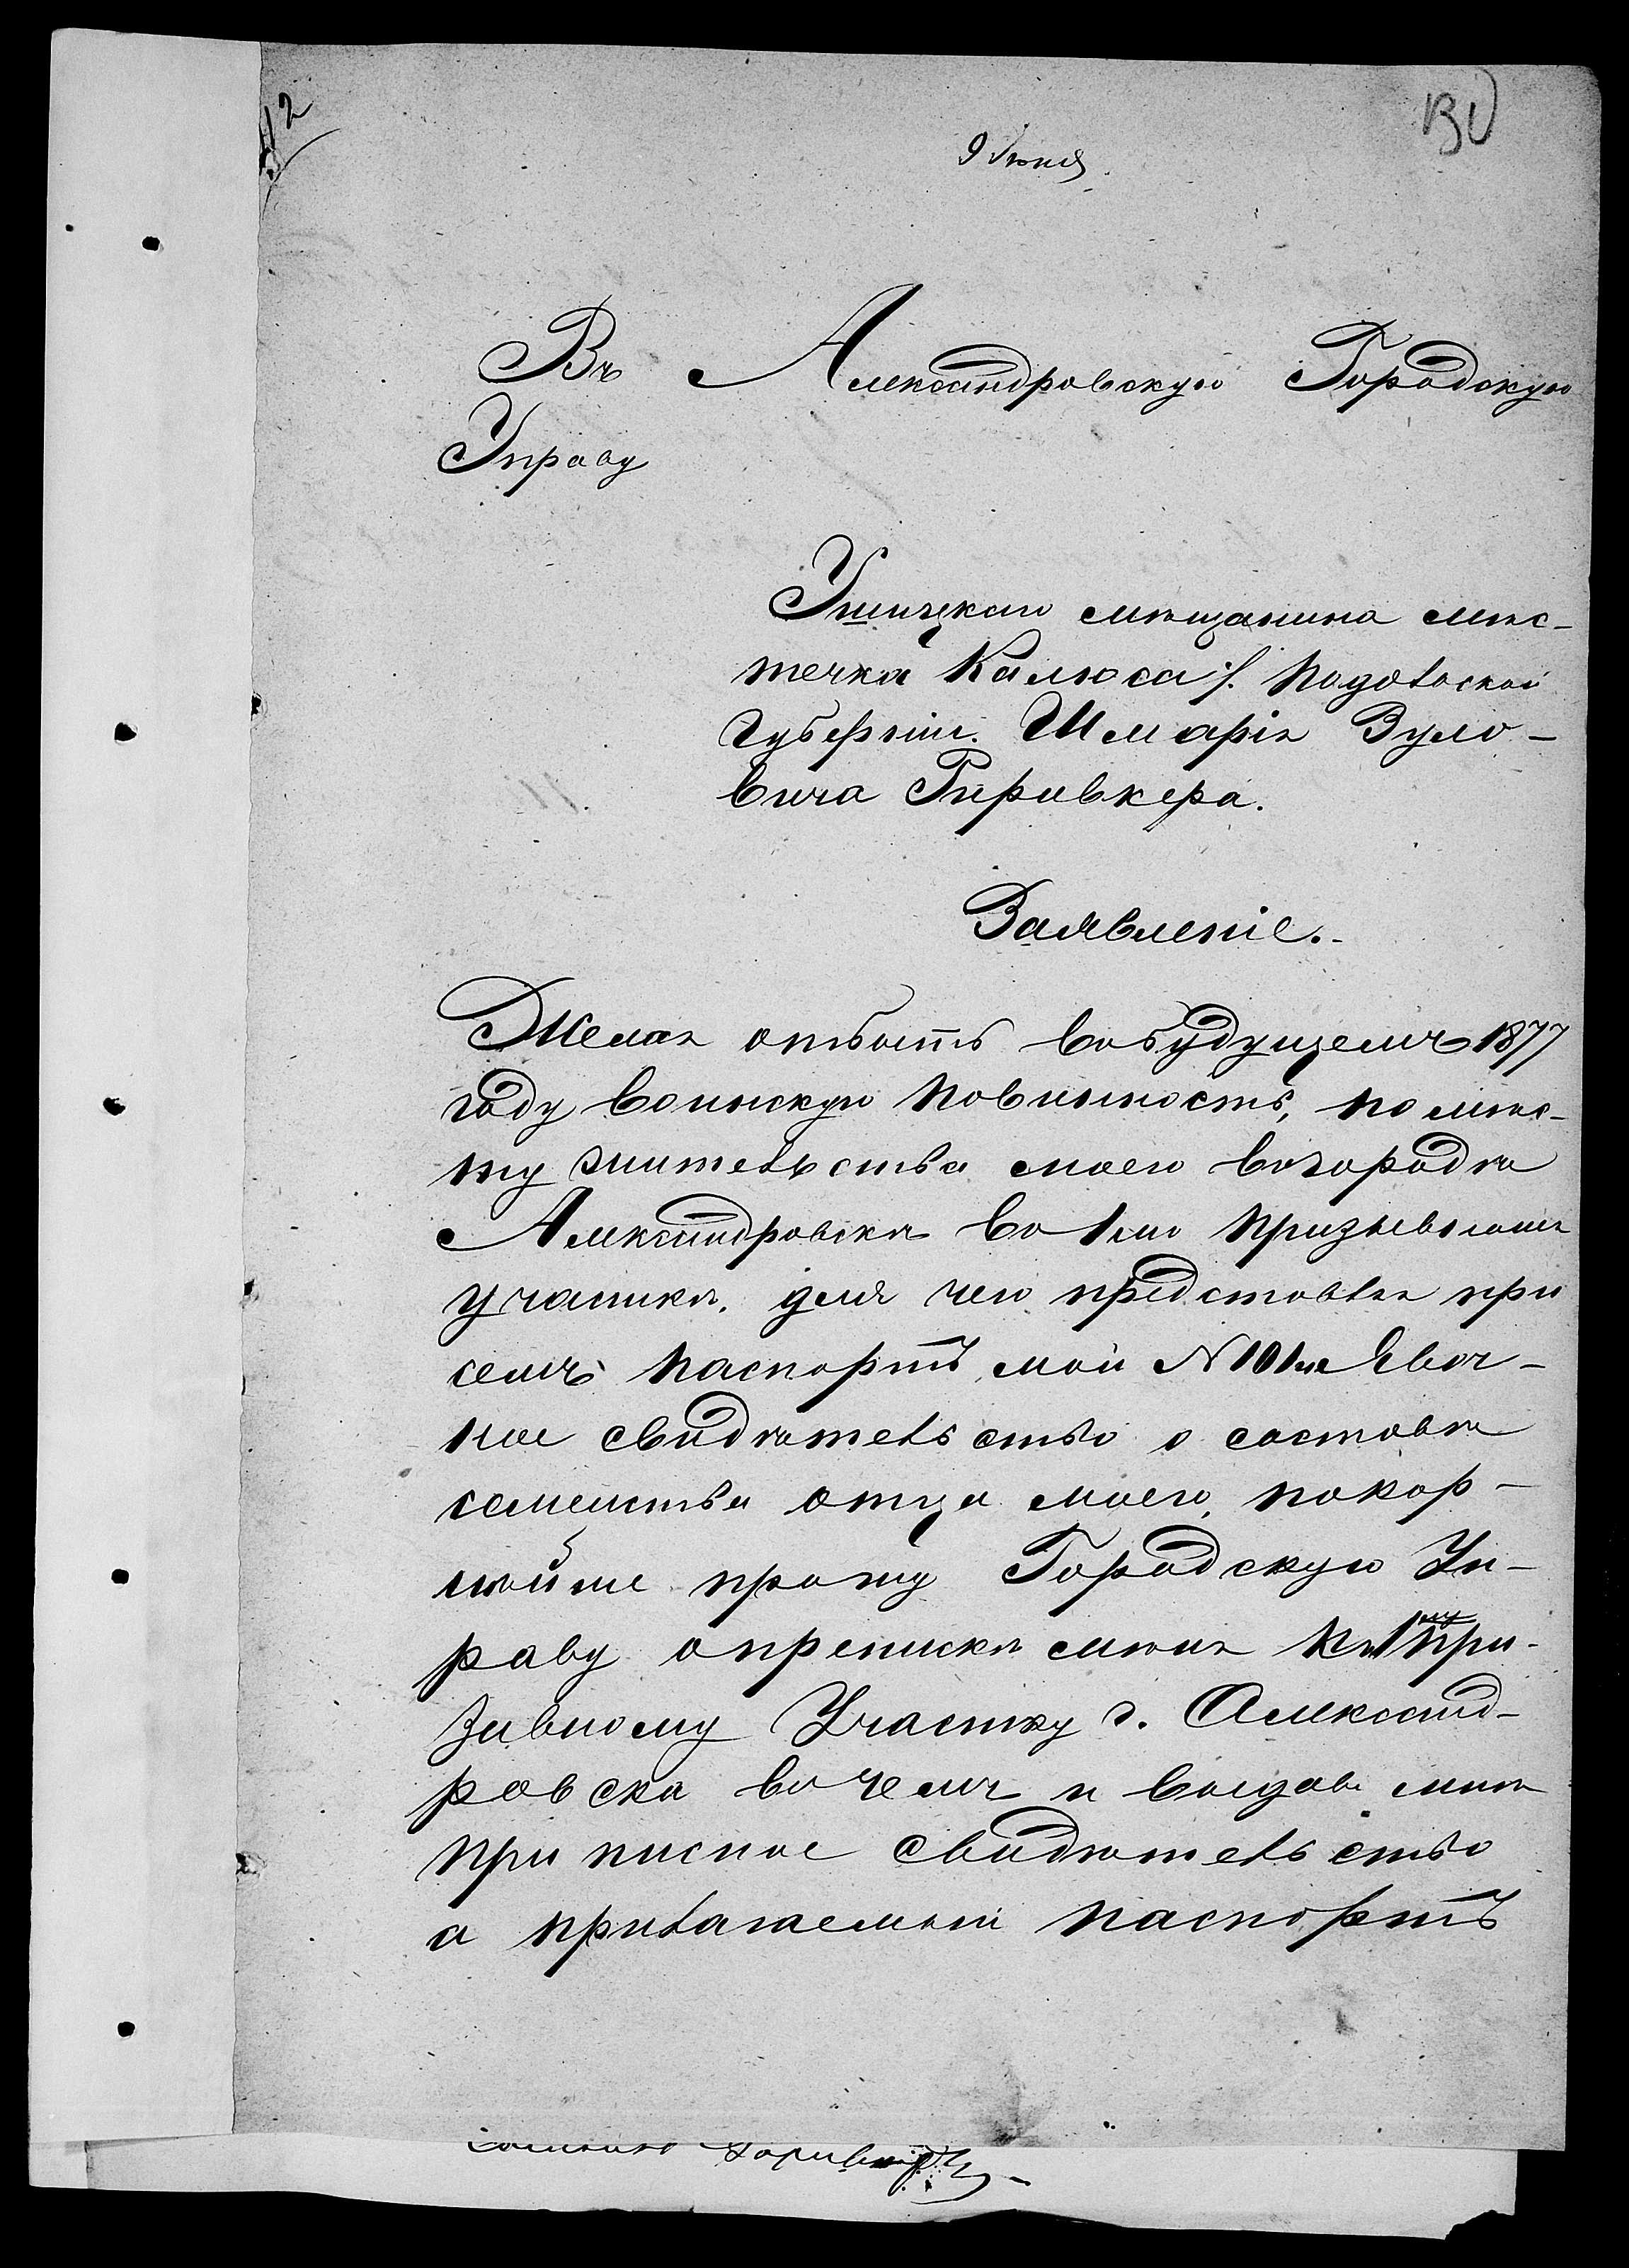 9 Июня
Въ Александровскую Городскую
Управу
Ушицкаго мѣщанина мѣс-
течка Калюса /. Подольской
Губерніи. Шмарія Зуло-
вича Гиривкера.
Заявленіе.
Желая отбыть въ будущемъ 1877
году воинскую повинность, по мѣс-
ту жительства моего въ городѣ
Александровскѣ въ 1мъ призывномъ
участкѣ, для чего представляя при
семъ паспортъ мой N 101 и Явоч-
ное свидѣтельство о составѣ
семейства отца моего, покор-
нѣйше прошу Городскую Уп-
раву о преписки меня къ 1му при-
зивному Участку г. Александ-
ровска въ чемъ и выдавъ мнѣ
приписное свидѣтельство
а прилагаемый паспортъ